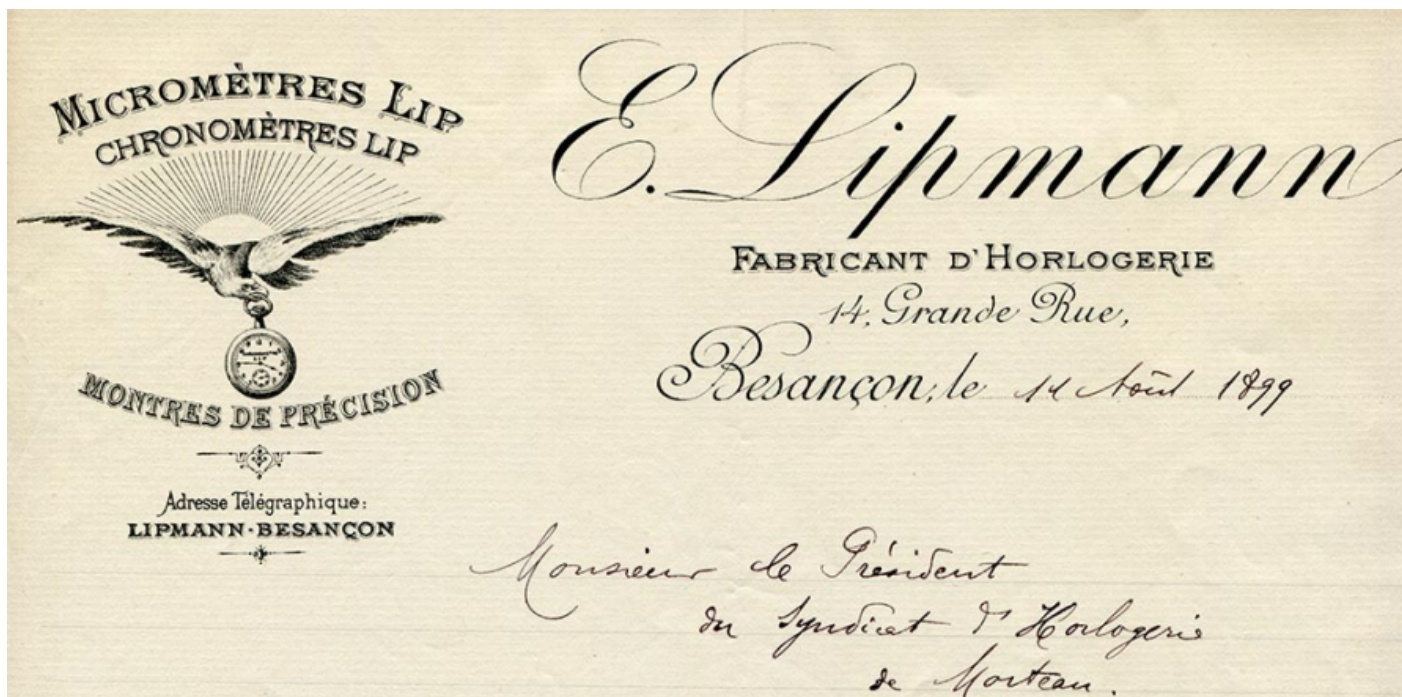 MICROMÈTRES LIP
CHRONOMÈTRES LIP
MONTRES DE PRÉCISION
Adresse Télégraphique:
LIPMANN-BESANÇON
E. Lipmann
FABRICANT D'HORLOGERIE
14, Grande Rue,
Besançon, le 14 Août 1899
Monsieur le Président
du Syndicat d'Horlogerie
de Morteau.